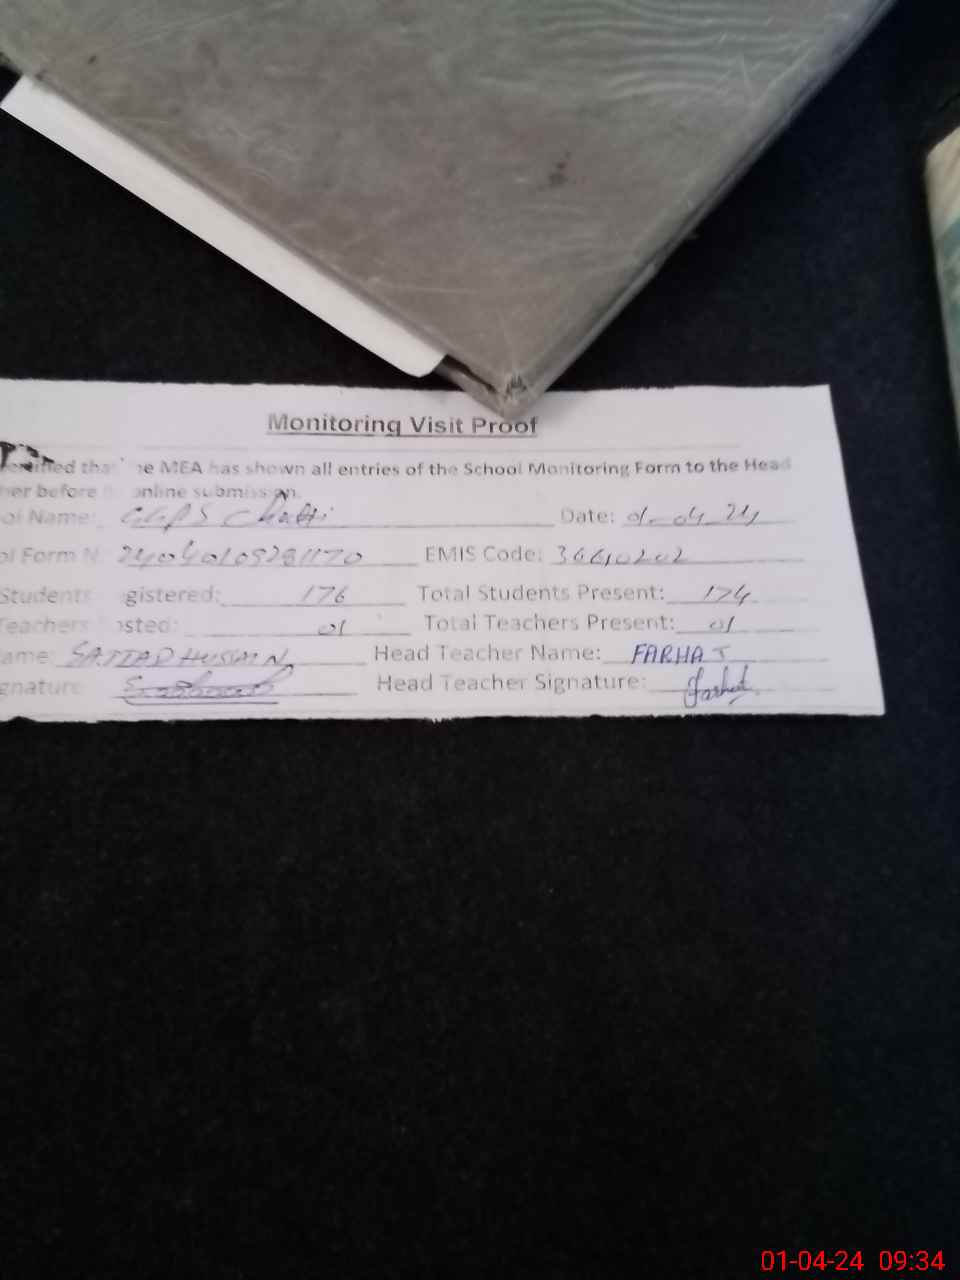 Monitoring Visit Proof
that he MEA has shown all entries of the School Monitoring Form to the Head
her before online submission.
ol Name: GGPS Chatti Date: 01-04-24
ol Form N 24040109281170 EMIS Code:
Students gistered: 176 Total Students Present: 174
Teachers osted: 01 Total Teachers Present: 01
ame: SAJJAD HUSSAIN Head Teacher Name: FARHAT
gnature Head Teacher Signature: Farhat
01-04-24 09:34